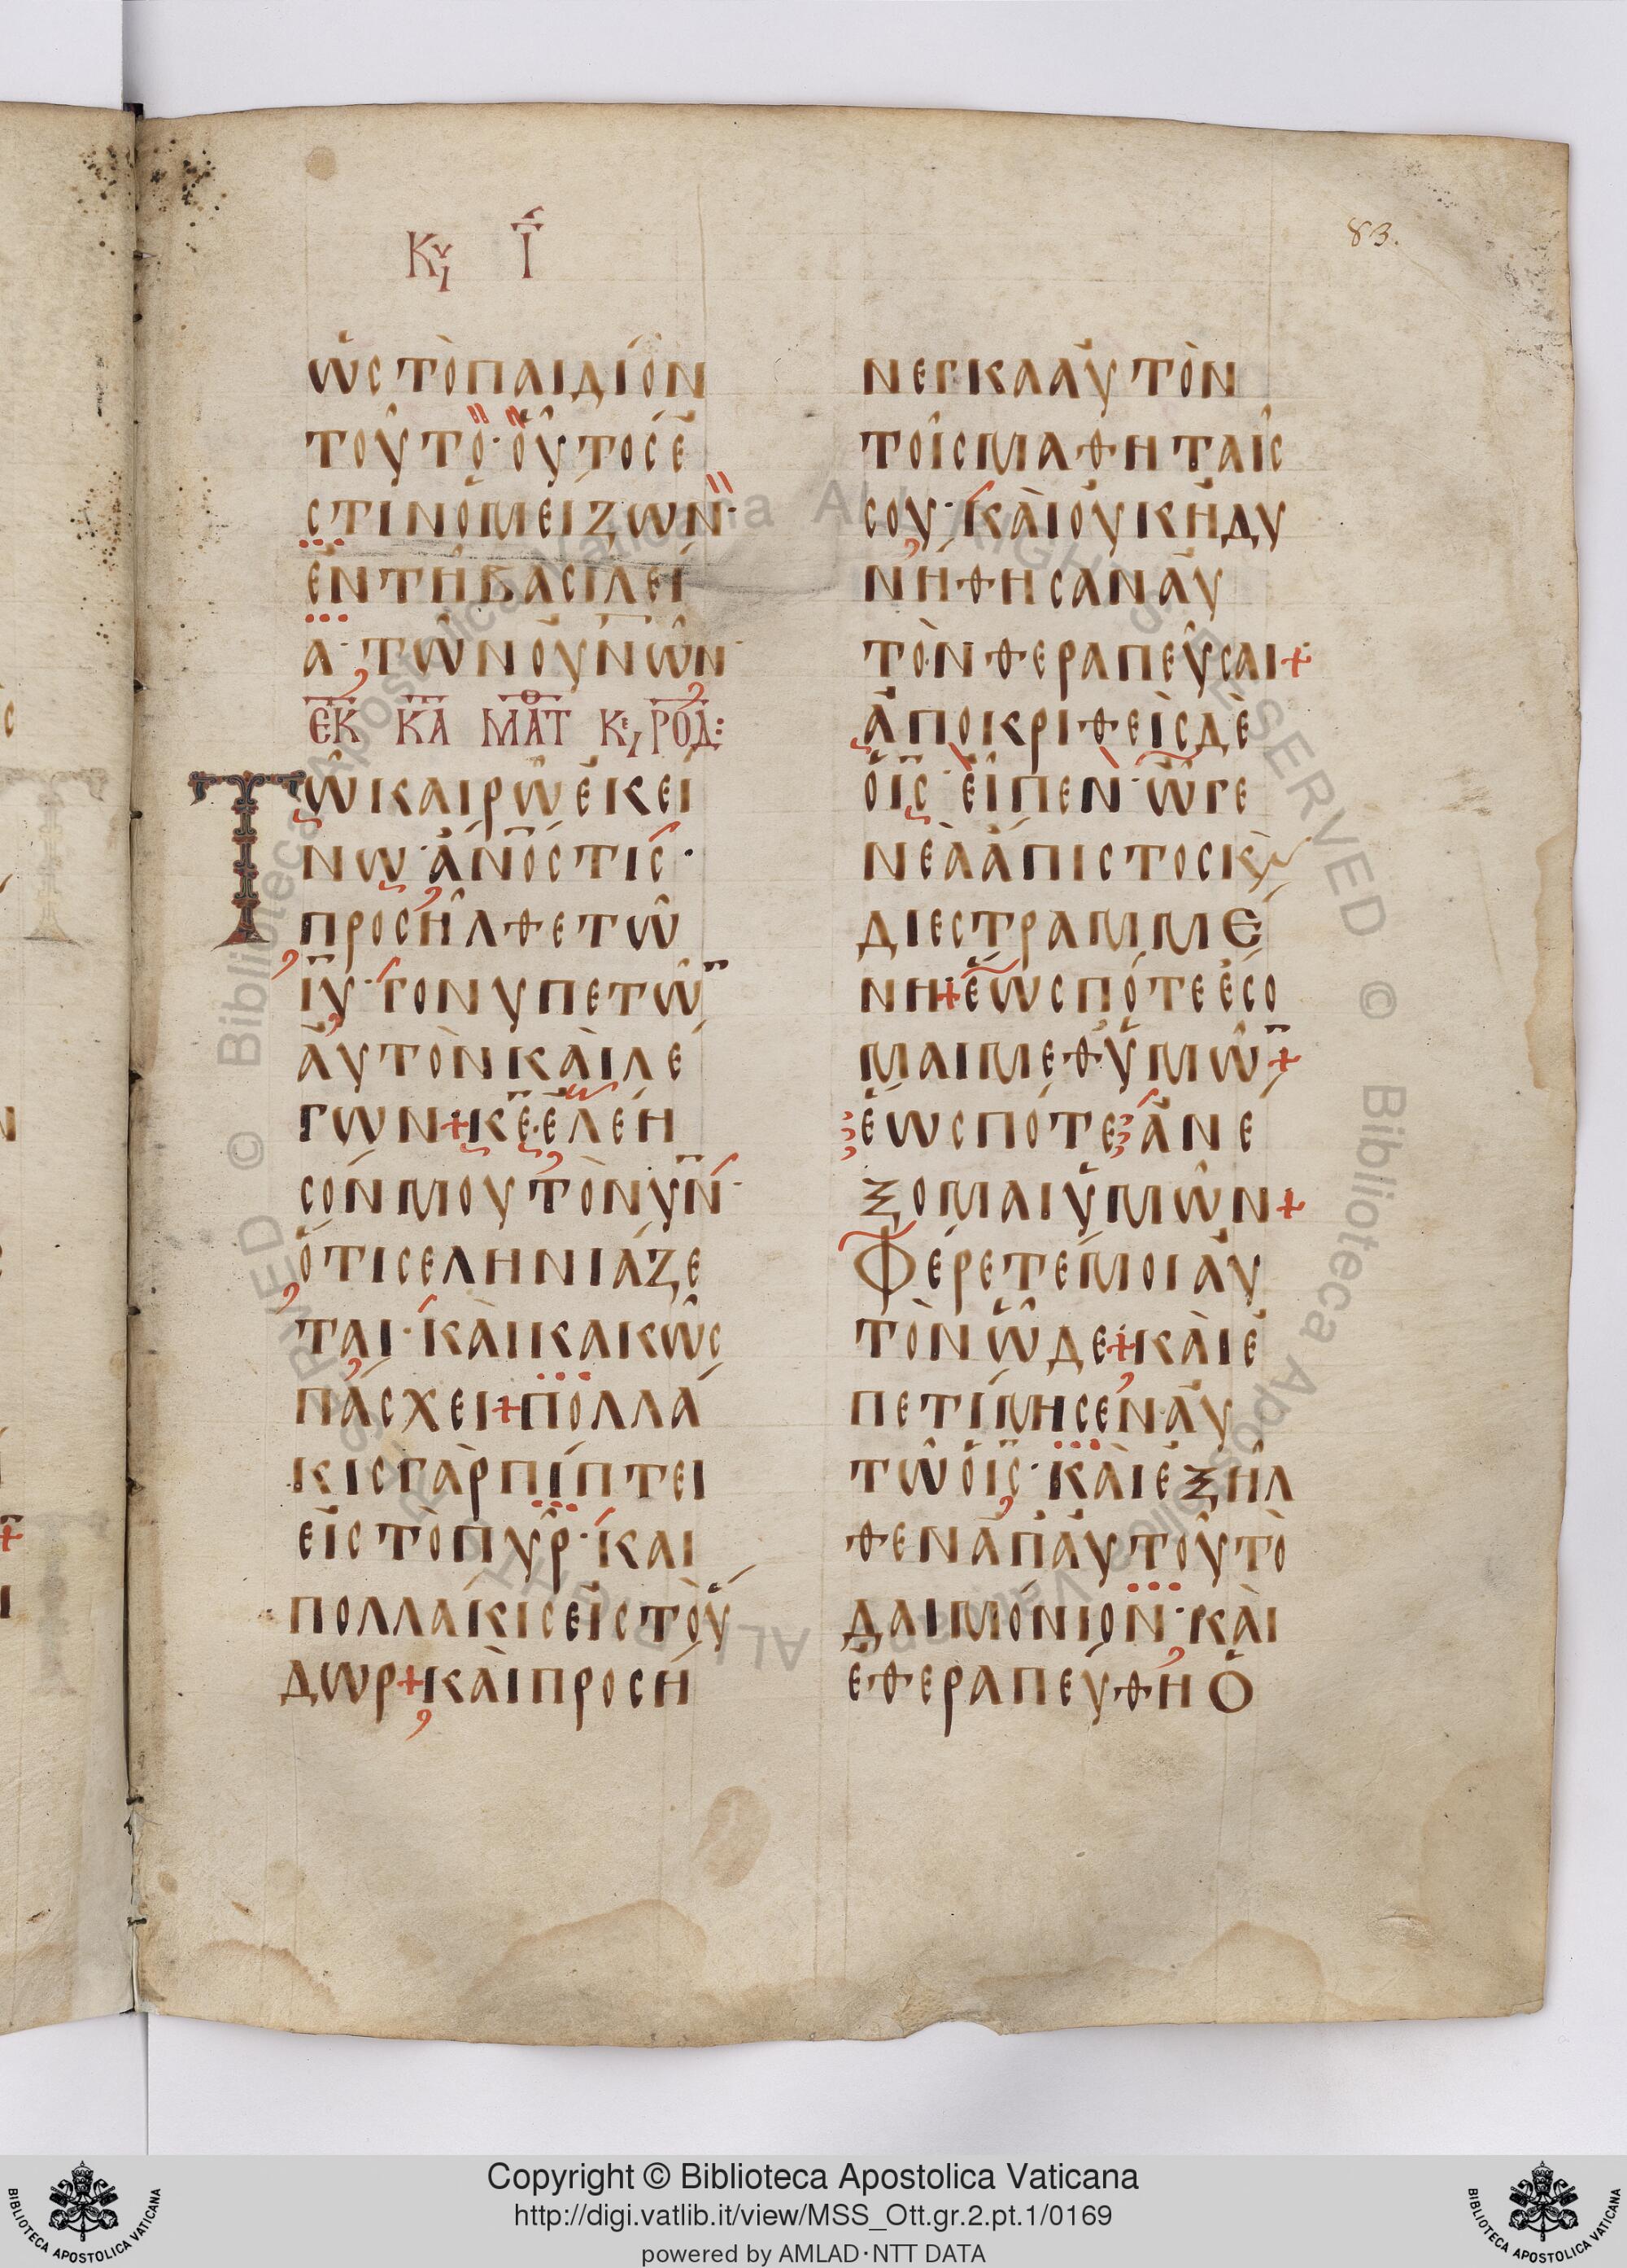 Κυι Ι
83.
ὡς τὸ παιδίον
τοῦτο· οὗτος ἐ
στὶν ὁ μείζων·
ἐν τῆ βασιλεί
α· τῶν οὐνῶν
ΕΚ ΚΑ ΜΑΤΘ Κε, ΡΟΔ:
Τῶ καιρῶ ἐκεί
νω· ἀνος τίς·
προσῆλθε τῶ
ιυ· γονυπετῶν
ἀυτὸν κὰι λέ
γων + κε· ἐλέη
σόν μου τὸν υν·
ὅτι σεληνιάζε
ται· κὰι κακῶς
πάσχει + πολλά
κις γὰρ πίπτει
εἰς τὸ πῦρ· και
πολλάκις εἰς τὸ ὕ
δωρ + κὰι προσή
νεγκα ἀυτὸν
τοῖς μαθηταῖς
σου· κὰι οὐκ ἠδυ
νήθησαν ἀυ
τὸν θεραπεῦσαι +
ἀποκριθεὶς δὲ
ὁ ις· εἶπεν· ὦ γε
νεὰ ἄπιστος κὶ
διεστραμμέ
νη + ἕως πότε ἔσο
μαι μεθ ὑμῶν +
ἕως πότε ἀνέ
ξομαι ὑμῶν +
Φέρετέ μοι ἀυ
τὸν ὧδε + κὰι ἐ
πετίμησεν ἀυ
τῶ ὁ ις· κὰι ἐξῆλ
θεν ἀπ ἀυτοῦ τὸ
δαιμόνιον· κὰι
ἐθεραπεύθη ὁ
Copyright © Biblioteca Apostolica Vaticana
http://digi.vatlib.it/view/MSS_Ott.gr.2.pt.1/0169
powered by AMLAD·NTT DATA